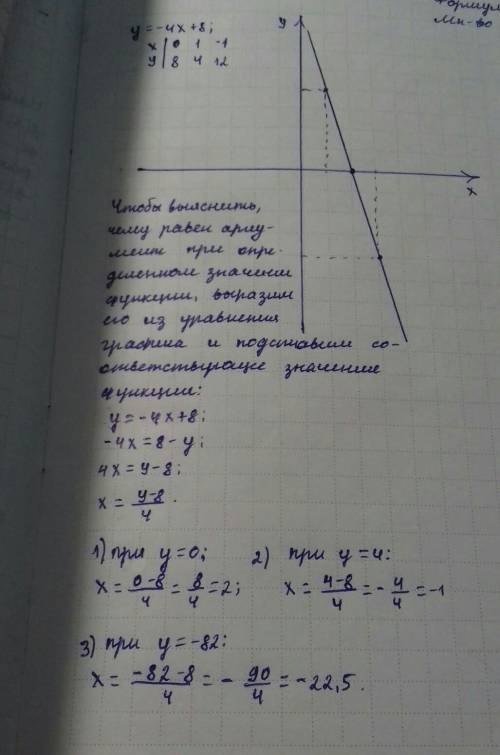 y = -4x+8;
x | 0 1 -1
y | 8 4 12
y
x
Формул
Мн-во
Чтобы выяснить,
чему равен аргу-
мент при опре-
деленном значении
функции, выразим
его из уравнения
графика и подставим со-
ответствующее значение
функции:
y = -4x+8;
-4x = 8-y;
4x = y-8;
x = \frac{y-8}{4}.
1) при y=0;
x = \frac{0-8}{4} = \frac{8}{4} = 2;
2) при y=4:
x = \frac{4-8}{4} = -\frac{4}{4} = -1
3) при y=-82:
x = \frac{-82-8}{4} = -\frac{90}{4} = -22,5.